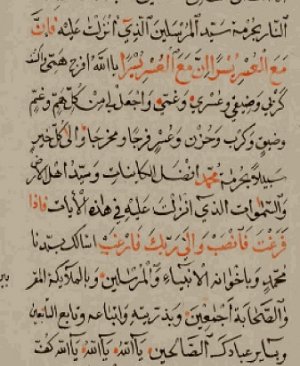 النار بحرمة سيد المرسلين الذي انزلت عليه فان
مع العسر يسرا ان مع العسر يسرا يا الله افرج همي وا
كربي وضيقي وعسري وغمي واجعل لي من كل هم وغم
وضيق وكرب وحزن وعسر فرجا ومخرجا والى كل خير
سبيلا بحرمة محمد افضل الكاينات وسيد اهل الارض
والسموات الذي انزلت عليه في هذه الآيات فاذا
فرغت فانصب والى ربك فارغب اسالك بسيدنا
محمد وباخوانه الانبياء والمرسلين وبالملائكة المقر
والصحابة اجمعين وبذريته واتباعه وتابع التابعين
وبساير عبادك الصالحين يا الله يا الله يا الله